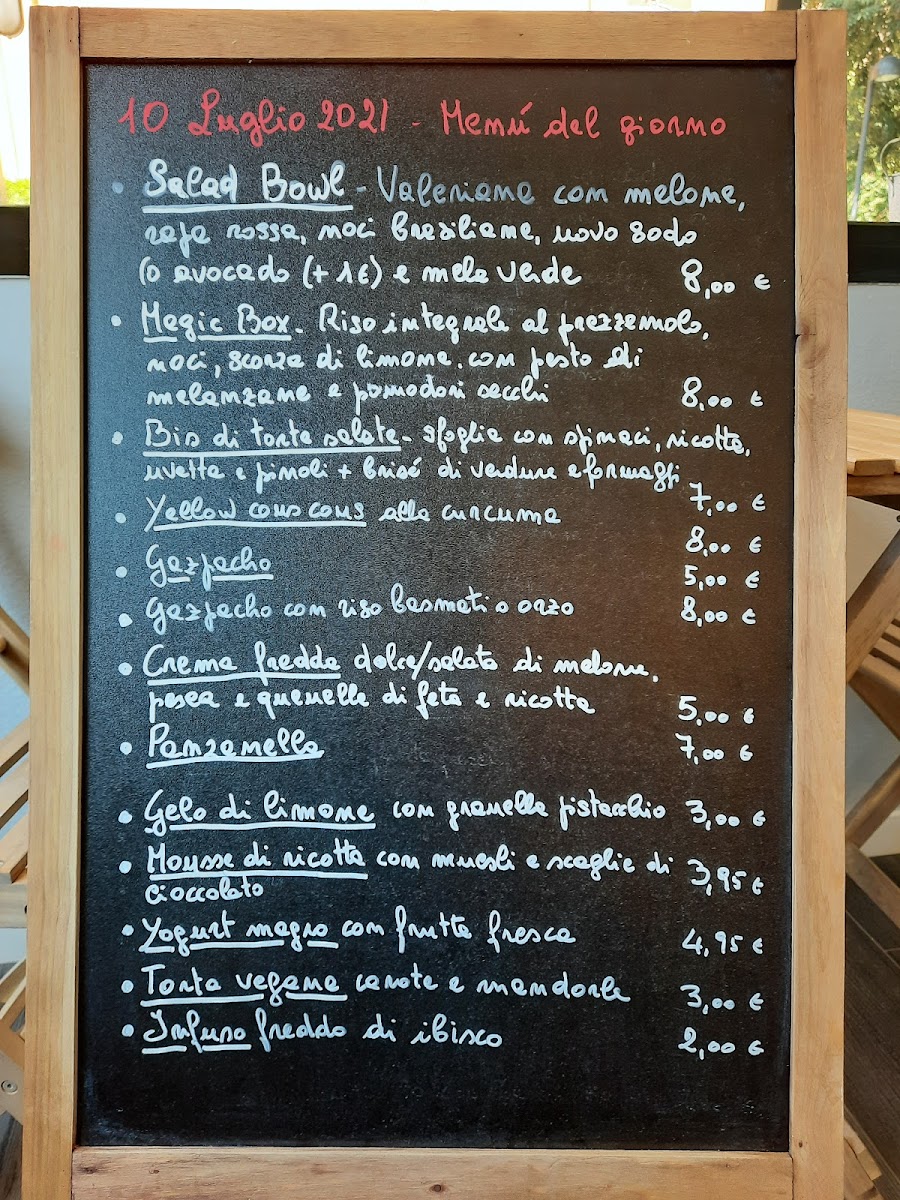 10 Luglio 2021 - Menú del giorno
• Salad Bowl - Valeriana con melone,
rapa rossa, noci brasiliane, uovo sodo
(o avocado (+ 1€) e mela verde 8,00 €
• Magic Box. Riso integrale al prezzemolo,
noci, scorza di limone, con pesto di
melanzane e pomodori secchi 8,00 €
• Bis di torta salata - sfoglia con spinaci, ricotta,
uvetta e pinoli + brisé di verdure e formaggi 7,00 €
• Yellow cous cous alla curcuma 8,00 €
• Gazpacho 5,00 €
• Gazpacho con riso basmati o orzo 8,00 €
• Crema fredda dolce/salata di melone,
pesca e quenelle di feta e ricotta 5,00 €
• Panzanella 7,00 €
• Gelo di limone con granella pistacchio 3,00 €
• Mousse di ricotta con muesli e scaglie di 3,95 €
cioccolato
• Yogurt magro con frutta fresca 4,95 €
• Torta vegana carote e mandorle 3,00 €
• Infuso freddo di ibisco 2,00 €